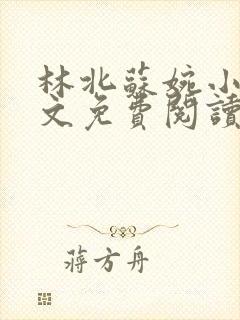 林北蘇婉小
文免費閱讀
蔣方舟